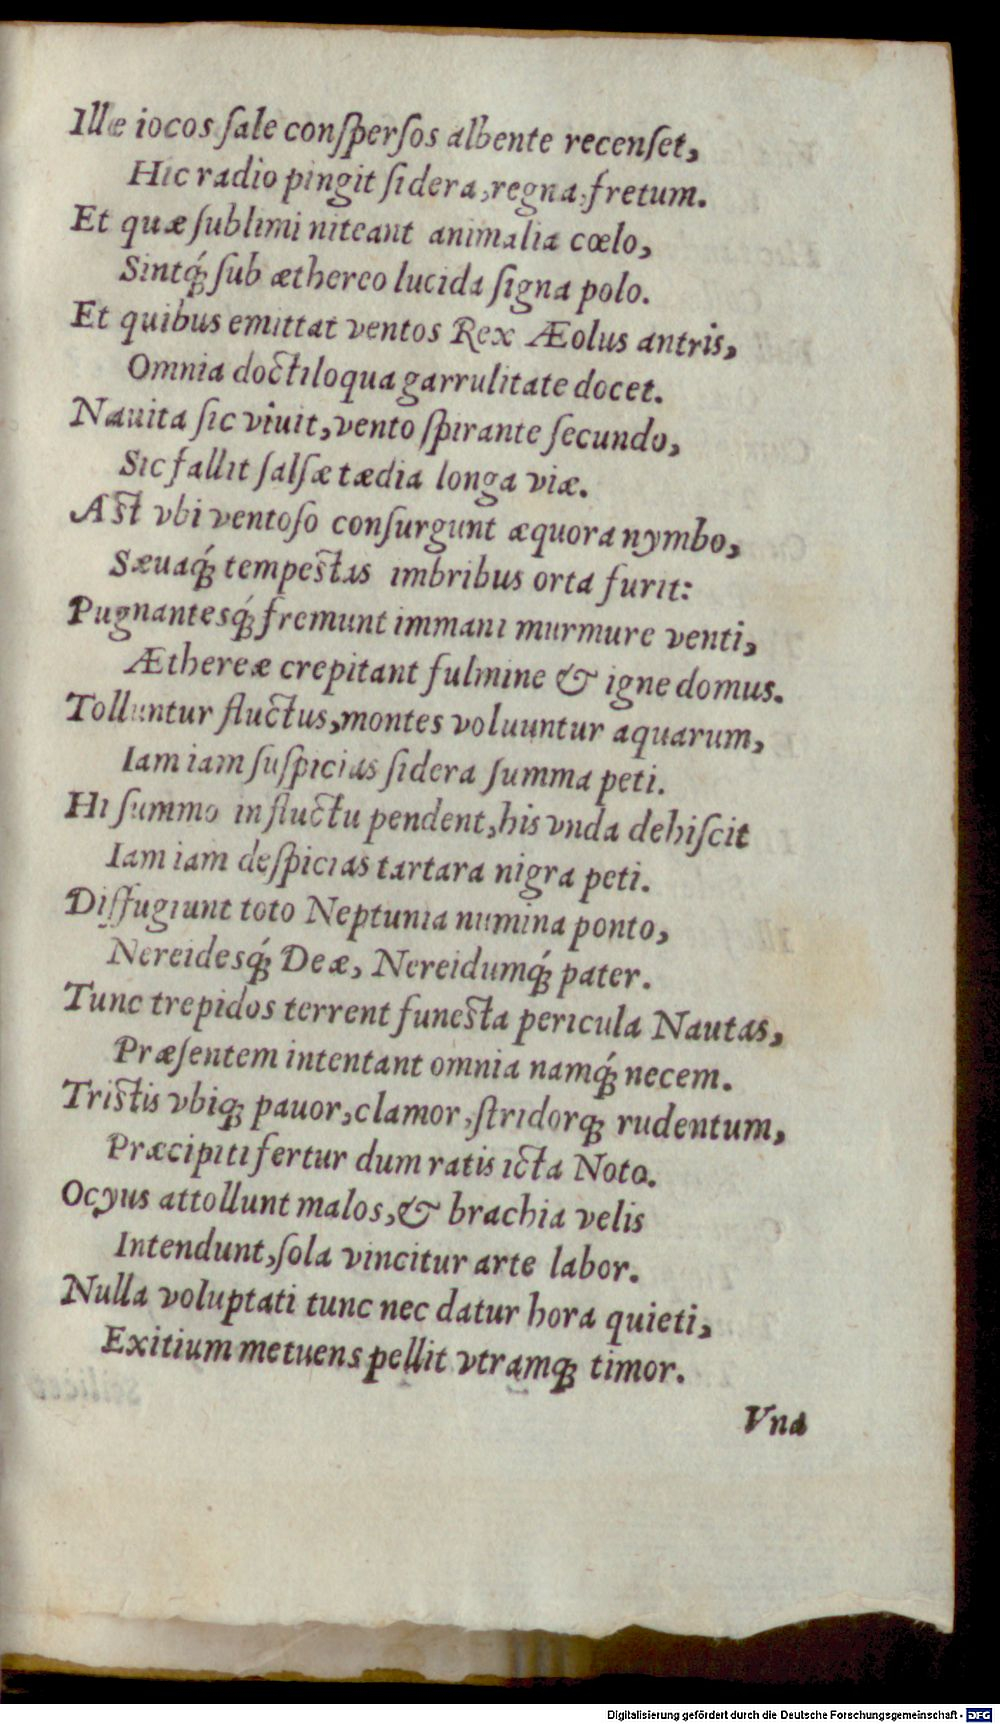 Illæ iocos ſale conſperſos albente recenſet,
Hic radio pingit ſidera, regna, fretum.
Et quæ ſublimi niteant animalia cœlo,
Sintq́; ſub æthereo lucida ſigna polo.
Et quibus emittat ventos Rex Æolus antris,
Omnia doctiloqua garrulitate docet.
Nauita ſic viuit, vento ſpirante ſecundo,
Sic fallit ſalſæ tædia longa viæ.
Aſt vbi ventoſo conſurgunt æquora nymbo,
Sæuaq́; tempeſtas imbribus orta furit:
Pugnantesq́; fremunt immani murmure venti,
Æthereæ crepitant fulmine & igne domus.
Tolluntur fluctus, montes voluuntur aquarum,
Iam iam ſuſpicias ſidera ſumma peti.
Hi ſummo in fluctu pendent, his vnda dehiſcit
Iam iam deſpicias tartara nigra peti.
Diffugiunt toto Neptunia numina ponto,
Nereidesq́; Deæ, Nereidumq́; pater.
Tunc trepidos terrent funeſta pericula Nautas,
Præſentem intentant omnia namq́; necem.
Triſtis vbiq; pauor, clamor, ſtridorq; rudentum,
Præcipiti fertur dum ratis icta Noto.
Ocyus attollunt malos, & brachia velis
Intendunt, ſola vincitur arte labor.
Nulla voluptati tunc nec datur hora quieti,
Exitium metuens pellit vtramq; timor.
Vna
Digitalisierung gefördert durch die Deutsche Forschungsgemeinschaft - DFG